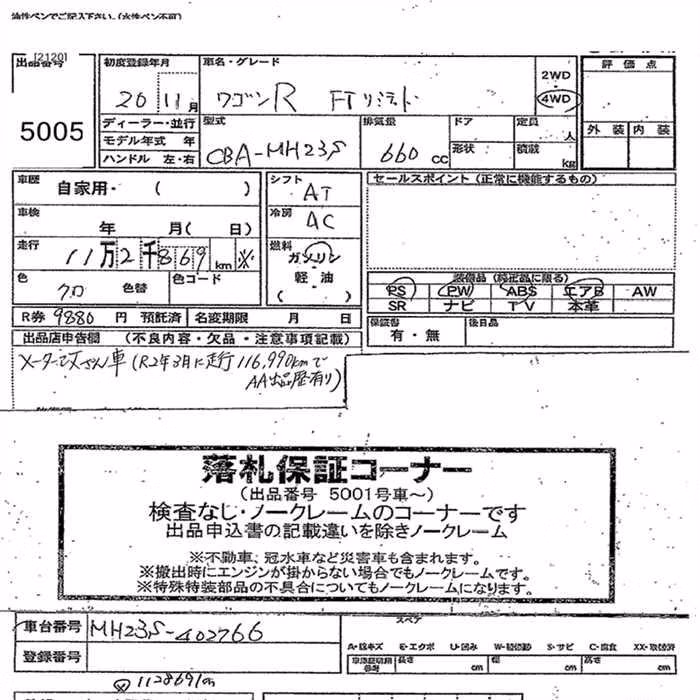 油性ペンでご記入下さい。(水性ペン不可)
[2120]
出品番号 初度登録年月 車名・グレード 評価点
5005 20 11月 ワゴンR FTリミテド 2WD 4WD
ディーラー・並行 型式 排気量 ドア 定員 人 外装 内装
モデル年式 年 CBA-MH23S 660 cc 形状 積載 kg
ハンドル 左・右
車歴 自家用・( ) シフト AT セールスポイント (正常に機能するもの)
車検 年 月( 日) 冷房 AC
走行 11万2千869 km ※ 燃料 ガソリン
軽油
( )
色 クロ 色替 色コード
装備品 (純正品に限る)
PS PW ABS エアB AW
SR ナビ TV 本革
R券 9880 円 預託済 名変期限 月 日 保証書 有・無 後日品
出品店申告欄 (不良内容・欠品・注意事項記載)
メーター改ざん車 (R2年3月に走行116,990kmで
AA出品歴有り)
落札保証コーナー
(出品番号 5001号車~)
検査なし・ノークレームのコーナーです
出品申込書の記載違いを除きノークレーム
※不動車、冠水車など災害車も含まれます。
※搬出時にエンジンが掛からない場合でもノークレームです。
※特殊特装部品の不具合についてもノークレームになります。
車台番号 MH23S-402766 スペア
登録番号
A・線キズ E・エクボ U・凹み W・補修跡 S・サビ C・腐食 XX・交換済
長さ cm 幅 cm 高さ cm
112869km